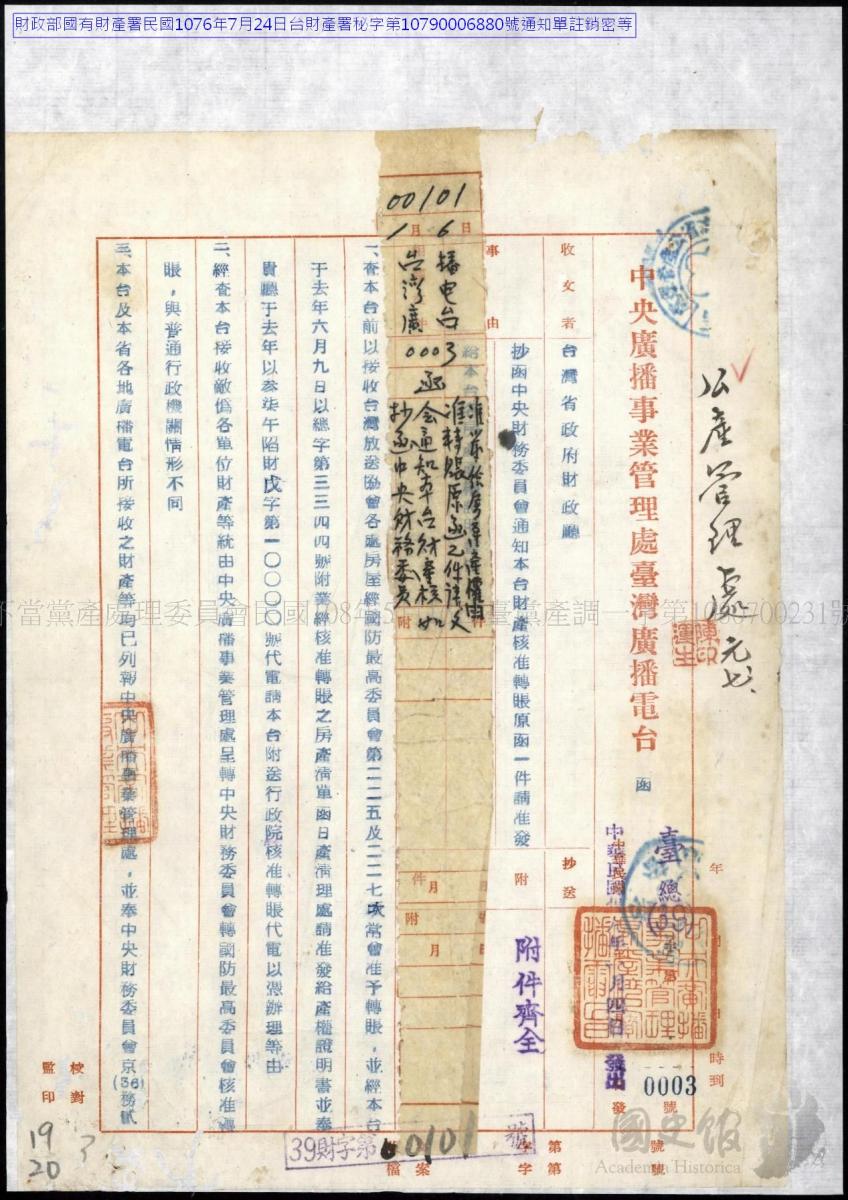 財政部國有財產署民國1076年7月24日台財產署秘字第10790006880號通知單註銷密等
公產管理處 元七
中央廣播事業管理處臺灣廣播電台 函
年
時到
臺總
中華民國
月四日
發出
發
0003
號
收文者
台灣省政府財政廳
抄送
事由
抄函中央財務委員會通知本台財產核准轉賬原函一件請准發
給本台
附
附件齊全
00101
月6日
台灣廣播電台
0003
函
抄函中央財務委員
會通知本台財產核
准轉賬原函乙件請
附件
月
附
月
一、查本台前以接收台灣放送協會各處房屋經國防最高委員會第二二五及二二七次常會准予轉賬,並經本台
于去年六月九日以總字第三三四四號附業經核准轉賬之房產清單函日產清理處請准發給產權證明書並奉
貴廳于去年以叁柒午陷財戊字第一〇〇〇〇號代電請本台附送行政院核准轉賬代電以憑辦理等由
二、經查本台接收敵僞各單位財產等統由中央廣播事業管理處呈轉中央財務委員會轉國防最高委員會核准轉
賬,與普通行政機關情形不同
三、本台及本省各地廣播電台所接收之財產等均已列報中央廣播事業管理處,並奉中央財務委員會京(36)務貳
校對
監印
19
20
3
39財字第00101號
檔案
字第號
字第號
不當黨產處理委員會民國108年5
臺黨產調一
第1080700231號
國史館
Academia Historica